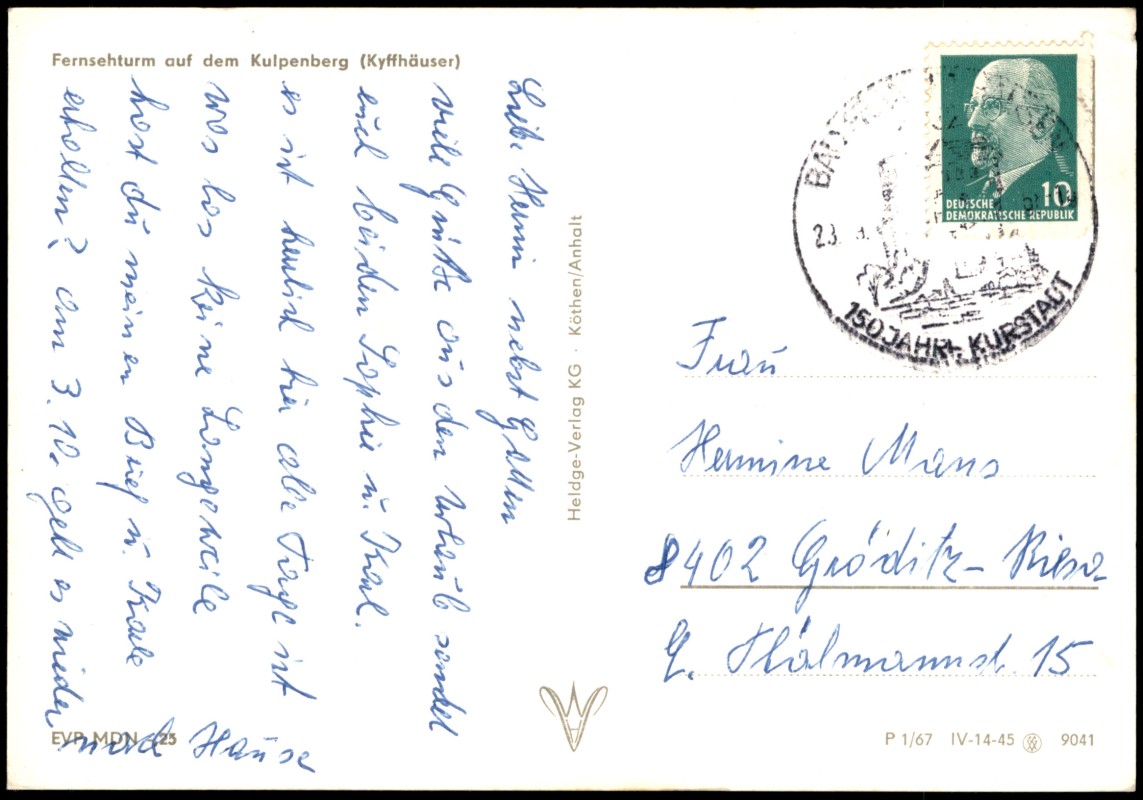 Fernsehturm auf dem Kulpenberg (Kyffhäuser)
Liebe Hermin nebst Gatten
viele Grüße aus den Urlaub sendet
euch beiden Sophie u. Karl.
es ist herlich hier alle Tage ist
was los keine Langeweile
hast du meinen Brief u. Karte
erhalten? am 3. 10. geht es wieder
nach Hause
Heldge-Verlag KG · Köthen/Anhalt
EVP MDN 25
DEUTSCHE
DEMOKRATISCHE REPUBLIK
10
BAD
23. 9.
150 JAHRE KURSTADT
Frau
Hermine Mans
8402 Gröditz - Riesa
E. Thälmannst. 15
P 1/67 IV-14-45 9041